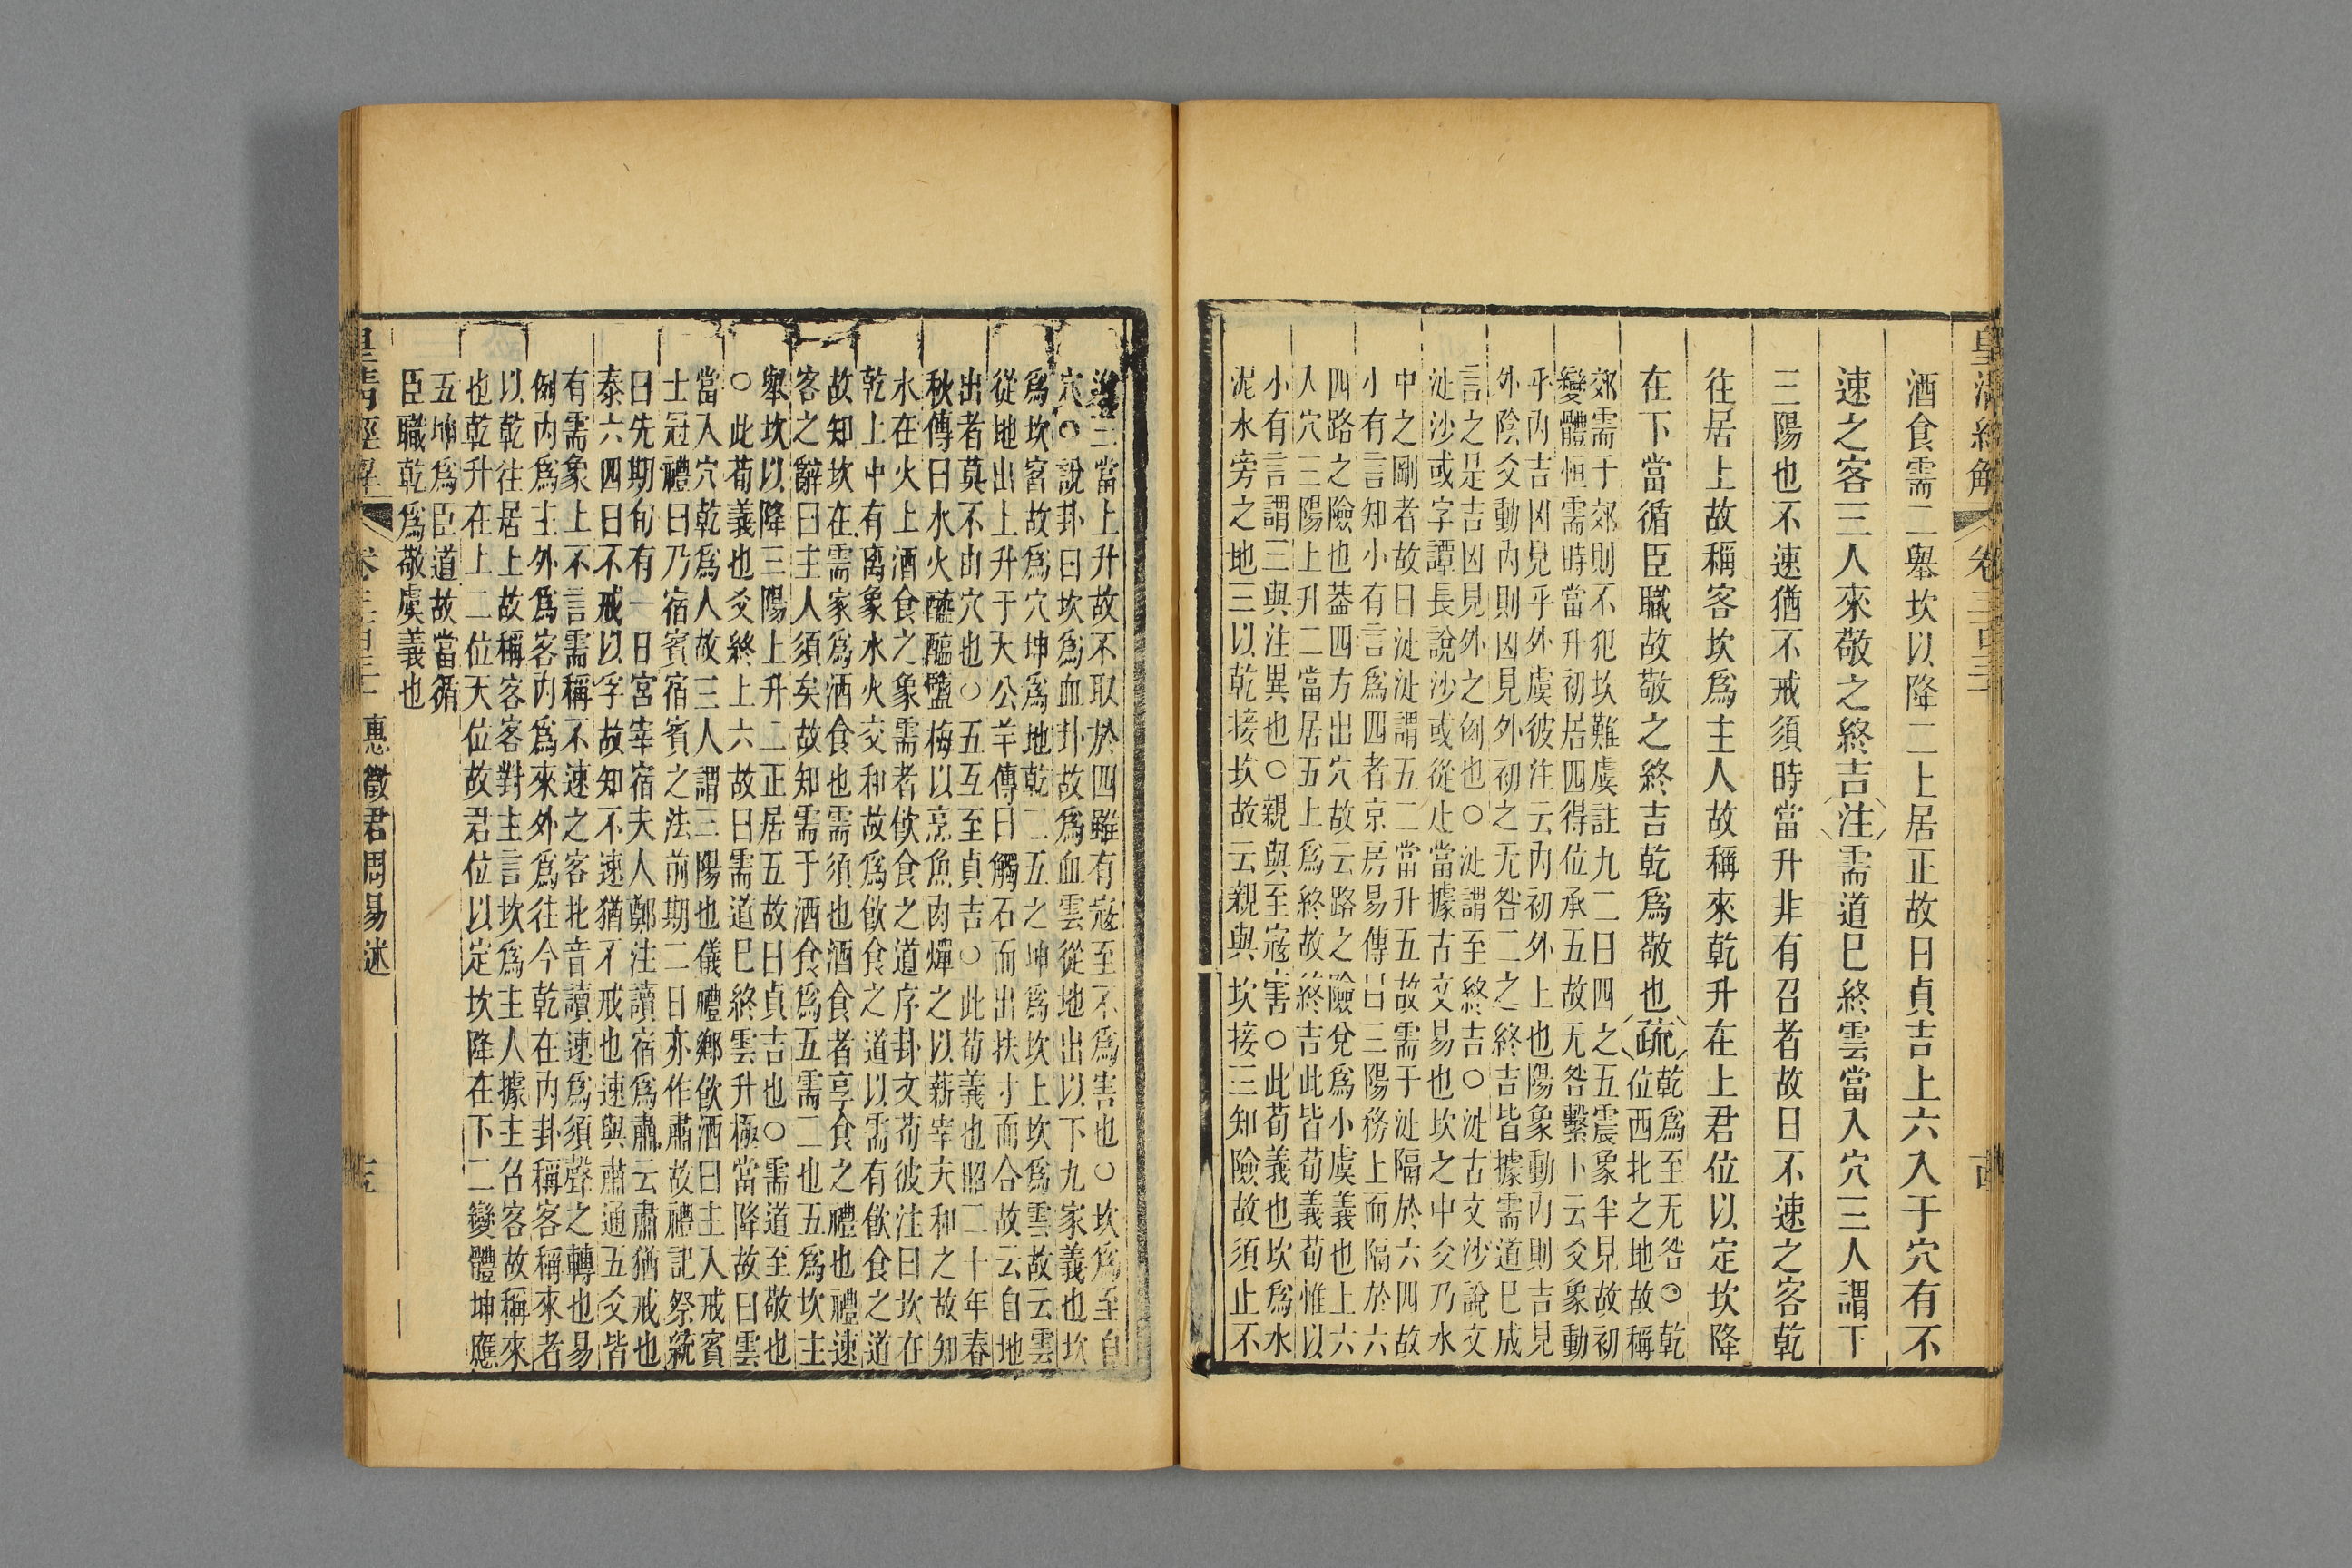 皇清經解
卷三百三十
酒食需二舉坎以降二上居正故曰貞吉上六入于穴有不
速之客三人來敬之終吉注需道已終雲當入穴三人謂下
三陽也不速猶不戒須時當升非有召者故曰不速之客乾
往居上故稱客坎爲主人故稱來乾升在上君位以定坎降
在下當循臣職故敬之終吉乾爲敬也疏
乾爲至无咎○乾
位西北之地故稱
郊需于郊則不犯坎難虞註九二曰四之五震象半見故初
變體恒需時當升初居四得位承五故无咎繫下云爻象動
乎內吉凶見乎外虞彼注云內初外上也陽象動內則吉見
外陰爻動內則凶見外初之无咎二之終吉皆據需道已成
言之是吉凶見外之例也○沚謂至終吉○沚古文沙說文
沚沙或字譚長說沙或從沚當據古文易也坎之中爻乃水
中之剛者故曰沚沚謂五二當升五故需于沚隔於六四故
小有言知小有言爲四者京房易傳曰三陽務上而隔於六
四路之險也葢四方出穴故云路之險兌爲小虞義也上六
入穴三陽上升二當居五上爲終故終吉此皆荀義荀惟以
小有言謂三與注異也○親與至寇害○此荀義也坎爲水
泥水旁之地三以乾接坎故云親與坎接三知險故須止不
進二當上升故不取於四雖有寇至不爲害也○坎爲至自
穴○說卦曰坎爲血卦故爲血雲從地出以下九家義也坎
爲坎窞故爲穴坤爲地乾二五之坤爲坎上坎爲雲故云雲
從地出上升于天公羊傳曰觸石而出扶寸而合故云自地
出者莫不由穴也○五互至貞吉○此荀義也昭二十年春
秋傳曰水火醯醢鹽梅以烹魚肉燀之以薪宰夫和之故知
水在火上酒食之象需者飲食之道序卦文荀彼注曰坎在
乾上中有离象水火交和故爲飲食之道以需有飲食之道
故知坎在需家爲酒食也需須也酒食者享食之禮也禮速
客之辭曰主人須矣故知需于酒食爲五需二也五爲坎主
舉坎以降三陽上升二正居五故曰貞吉也○需道至敬也
○此荀義也爻終上六故曰需道已終雲升極當降故曰雲
當入穴乾爲人故三人謂三陽也儀禮鄉飲酒曰主人戒賓
士冠禮曰乃宿賓宿賓之法前期二日亦作肅故禮記祭統
曰先期旬有一日宮宰宿夫人鄭注讀宿爲肅云肅猶戒也
泰六四曰不戒以孚故知不速猶不戒也速與肅通五爻皆
有需象上不言需稱不速之客北音讀速爲須聲之轉也易
例內爲主外爲客內爲來外爲往今乾在內卦稱客稱來者
以乾往居上故稱客客對主言坎爲主人據主召客故稱來
也乾升在上二位天位故君位以定坎降在下二變體坤應
五坤爲臣道故當循
臣職乾爲敬虞義也
皇清經解
惠徵君周易述